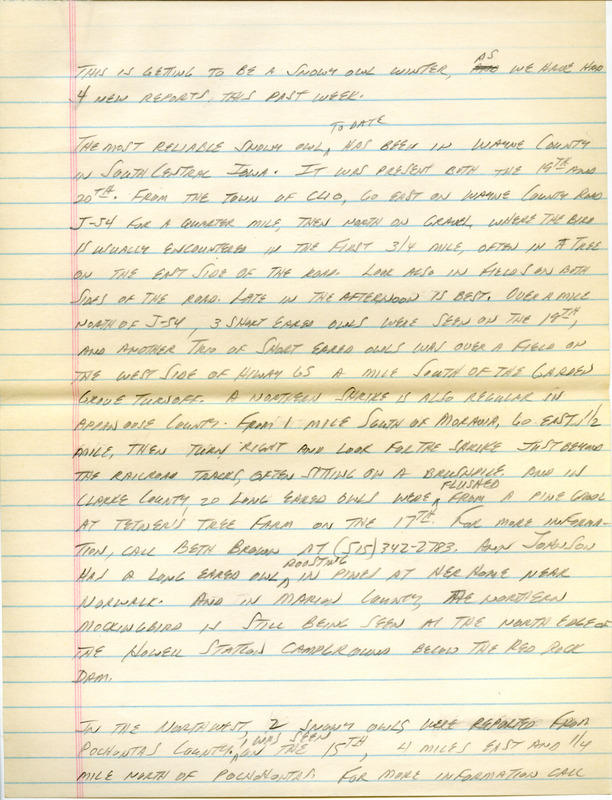 THIS IS GETTING TO BE A SNOWY OWL WINTER, AS WE HAVE HAD
4 NEW REPORTS, THIS PAST WEEK.
THE MOST RELIABLE SNOWY OWL, TO DATE HAS BEEN IN WAYNE COUNTY
IN SOUTH CENTRAL IOWA. IT WAS PRESENT BOTH THE 19TH AND
20TH. FROM THE TOWN OF CLIO, GO EAST ON WAYNE COUNTY ROAD
J-54 FOR A QUARTER MILE, THEN NORTH ON GRAVEL, WHERE THE BIRD
IS USUALLY ENCOUNTERED IN THE FIRST 3/4 MILE, OFTEN IN A TREE
ON THE EAST SIDE OF THE ROAD. LOOK ALSO IN FIELDS ON BOTH
SIDES OF THE ROAD. LATE IN THE AFTERNOON IS BEST. OVER A MILE
NORTH OF J-54, 3 SHORT EARED OWLS WERE SEEN ON THE 19TH,
AND ANOTHER TRIO OF SHORT EARED OWLS WAS OVER A FIELD ON
THE WEST SIDE OF HIWAY 65 A MILE SOUTH OF THE GARDEN
GROVE TURNOFF. A NORTHERN SHRIKE IS ALSO REGULAR IN
APPANOOSE COUNTY. FROM 1 MILE SOUTH OF MORAVIA, GO EAST 1 1/2
MILE, THEN TURN RIGHT AND LOOK FOR THE SHRIKE JUST BEYOND
THE RAILROAD TRACKS, OFTEN SITTING ON A BRUSHPILE. AND IN
CLARKE COUNTY, 20 LONG EARED OWLS WERE FLUSHED FROM A PINE GROVE
AT TETHER'S TREE FARM ON THE 17TH. FOR MORE INFORMA-
TION, CALL BETH BROWN AT (515) 342-2783. ANN JOHNSON
HAS A LONG EARED OWL ROOSTING IN PINES AT HER HOME NEAR
NORWALK. AND IN MARION COUNTY, THE NORTHERN
MOCKINGBIRD IS STILL BEING SEEN AT THE NORTH EDGE OF
THE HOWELL STATION CAMPGROUND BELOW THE RED ROCK
DAM.
IN THE NORTHWEST, 2 SNOWY OWLS WERE REPORTED FROM
POCHONTAS COUNTY. 1 WAS SEEN ON THE 15TH, 4 MILES EAST AND 1/4
MILE NORTH OF POCHOHONTAS. FOR MORE INFORMATION CALL